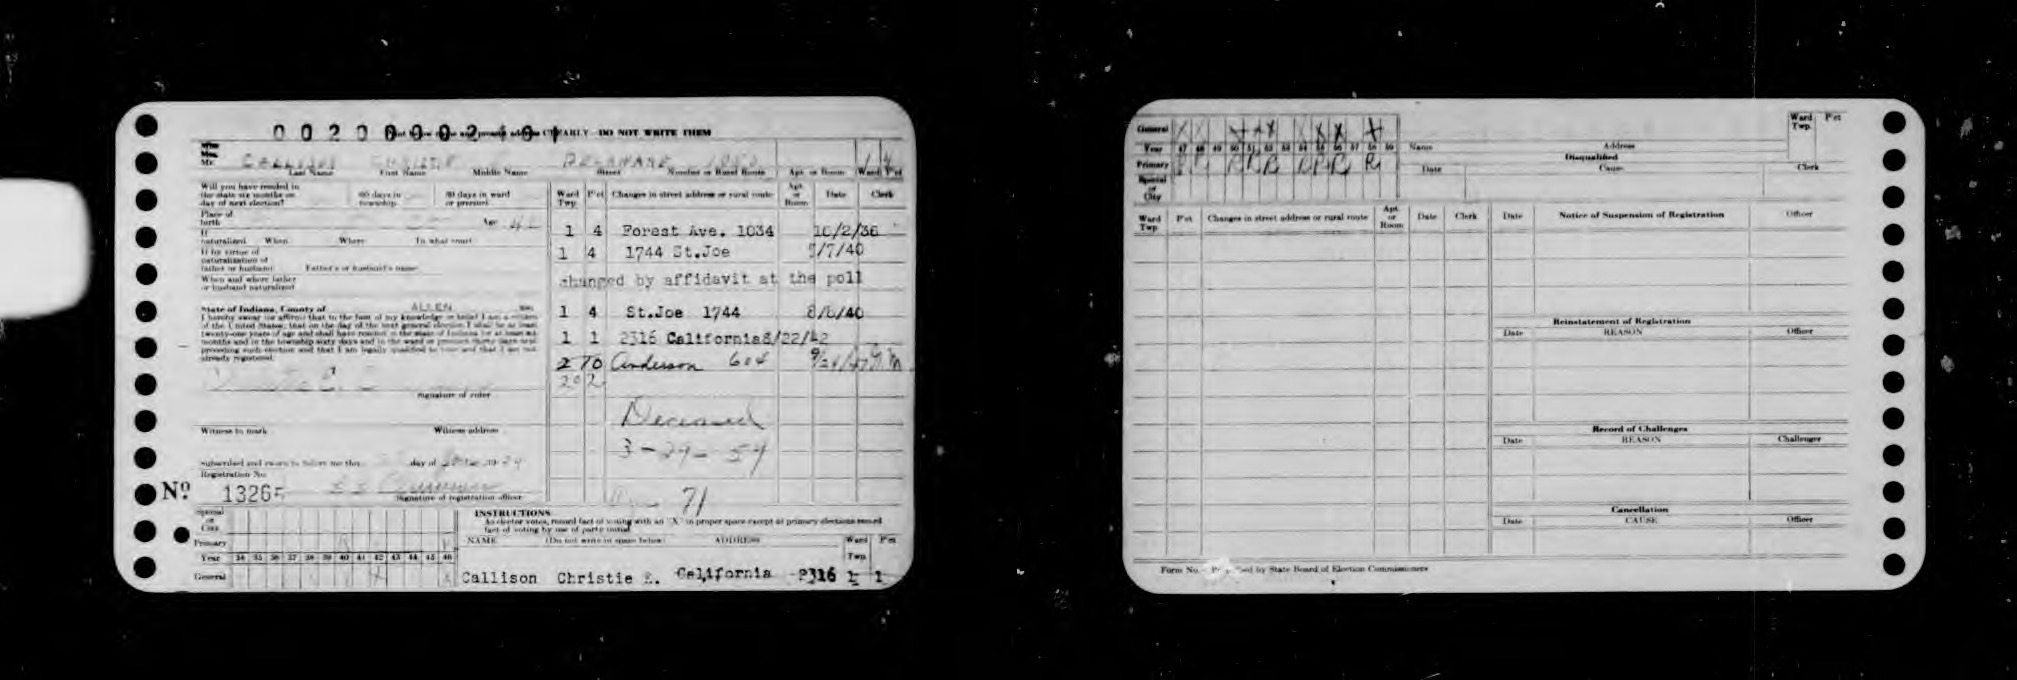 0020000210
CLEARLY - DO NOT WRITE THEM
Mr. CALLISON CHRISTIE DELAWARE 1 4
Last Name First Name Middle Name Street Number or Rural Route Apt. or Room Ward Pct
Will you have resided in the state six months on day of next election? 60 days in township 30 days in ward or precinct
Place of birth Age 42
If naturalized When Where In what court
If by virtue of naturalization of father or husband Father's or husband's name
When and where father or husband naturalized
State of Indiana, County of ALLEN
I hereby swear (or affirm) that to the best of my knowledge or belief I am a citizen
of the United States; that on the day of the next general election I shall be at least
twenty-one years of age and shall have resided in the state of Indiana for at least six
months and in the township sixty days and in the ward or precinct thirty days next
preceding such election and that I am legally qualified to vote and that I am not
already registered.
Signature of voter
Witness to mark Witness address
Subscribed and sworn to before me this day of
Registration No.
No 13265
Signature of registration officer
Ward Twp. Pct Changes in street address or rural route Apt. or Room Date Clerk
1 4 Forest Ave. 1034 10/2/36
1 4 1744 St.Joe /7/40
changed by affidavit at the poll
1 4 St.Joe 1744 8/6/40
1 1 2316 California 8/22/42
2 10 Anderson 604 9/24/47
202
Deceased
3-29-59
Age 71
Special or City
Primary
Year 34 35 36 37 38 39 40 41 42 43 44 45 46
General
INSTRUCTIONS
As elector votes, record fact of voting with an "X" in proper space except at primary elections record
fact of voting by use of party initial
NAME (Do not write in space below) ADDRESS Ward Twp. Pct
Callison Christie E. California 2316 1 1
General X X X X X X X X X
Year 47 48 49 50 51 52 53 54 55 56 57 58 59
Primary R R R R R R R R R
Special or City
Name Address Ward Twp. Pct
Disqualified
Date Cause Clerk
Ward Twp Pct Changes in street address or rural route Apt. or Room Date Clerk
Date Notice of Suspension of Registration Officer
Reinstatement of Registration
Date REASON Officer
Record of Challenges
Date REASON Challenger
Cancellation
Date CAUSE Officer
Form No. Prescribed by State Board of Election Commissioners